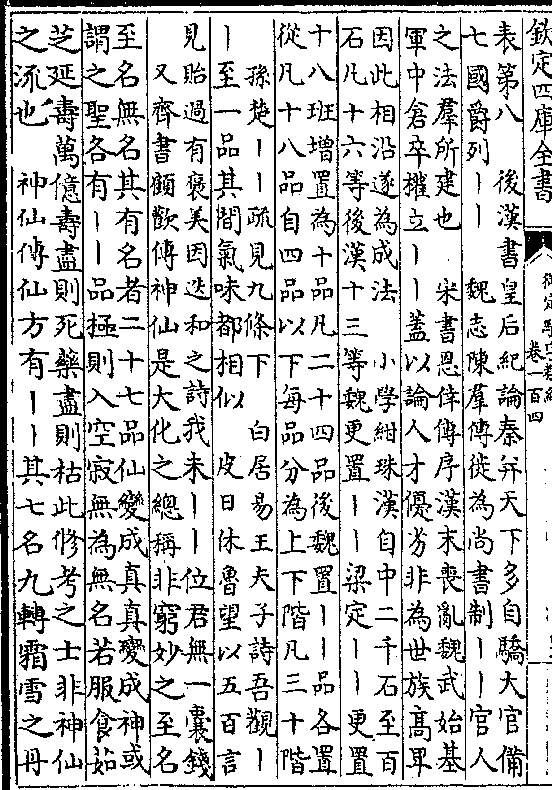 欽定四庫全書
卷一百四
表第八　後漢書皇后紀論秦并天下多自驕大官備
七國爵列丨丨　魏志陳羣傳徙為尚書制丨丨官人
之法羣所建也　宋書恩倖傳序漢末喪亂魏武始基
軍中倉卒權立丨丨蓋以論人才優劣非為世族高卑
因此相沿遂為成法　小學紺珠漢自中二千石至百
石凡十六等後漢十三等魏更置丨丨梁定丨丨更置
十八班增置為十品凡二十四品後魏置丨丨品各置
從凡十八品自四品以下每品分為上下階凡三十階
孫楚丨丨疏見九條下　白居易王夫子詩吾觀丨
丨至一品其間氣味都相似　皮日休魯望以五百言
見貽過有褒美因迭和之詩我未丨丨位君無一囊錢
又齊書顧歡傳神仙是大化之總稱非窮妙之至名
至名無名其有名者二十七品仙變成真真變成神或
謂之聖各有丨丨品極則入空寂無為無名若服食茹
芝延壽萬億壽盡則死藥盡則枯此修考之士非神仙
之流也　神仙傳仙方有丨丨其七名九轉霜雪之丹